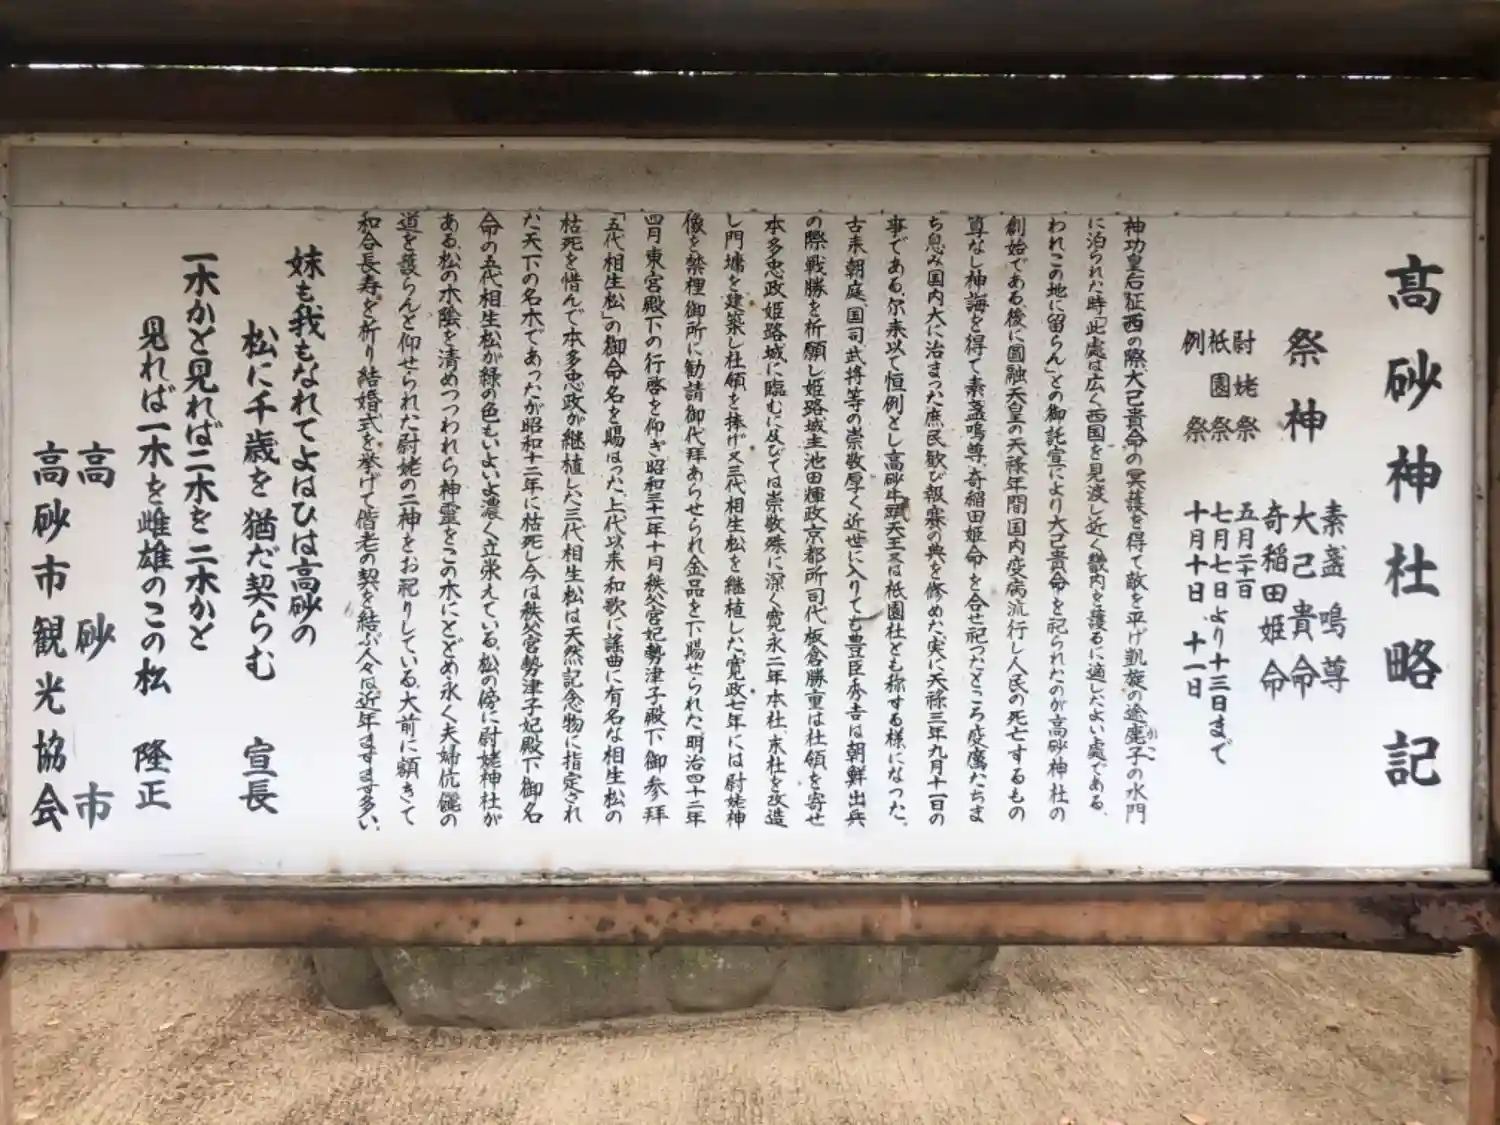 高砂神社略記
祭神
素盞嗚尊
大己貴命
奇稲田姫命
尉姥祭 五月二十一日
祇園祭 七月七日より十三日まで
例祭 十月十日、十一日
神功皇后征西の際大己貴命の冥護を得て敵を平げ凱旋の途鹿子の水門
に泊られた時「此處は広く西国を見渡し近く畿内を護るに適したよい處である、
われこの地に留らん」との御託宣により大己貴命を祀られたのが高砂神社の
創始である、後に圓融天皇の天禄年間国内疫病流行し人民の死亡するもの
算なし神誨を得て素盞嗚尊、奇稲田姫命を合せ祀ったところ疫癘たちま
ち息み国内大に治まった庶民歓び報賽の典を修めた、実に天禄三年九月十一日の
事である、尓来以て恒例とし高砂牛頭天王又は祇園社とも称する様になった。
古来朝庭、国司武将等の崇敬厚く近世に入りても豊臣秀吉は朝鮮出兵
の際戦勝を祈願し姫路城主池田輝政京都所司代板倉勝重は社領を寄せ
本多忠政姫路城に臨むに及びては崇敬殊に深く寛永二年本社、末社を改造
し門墉を建築し社領を捧げ又三代相生松を継植した、寛政七年には尉姥神
像を禁裡御所に勧請御代拜あらせられ金品を下賜せられた、明治四十二年
四月東宮殿下の行啓を仰ぎ昭和三十一年十月秩父宮妃勢津子殿下御参拜
「五代相生松」の御命名を賜はった上代以来和歌に謡曲に有名な相生松の
枯死を惜んで本多忠政が継植した三代相生松は天然記念物に指定され
た天下の名木であったが昭和十二年に枯死し今は秩父宮勢津子妃殿下御名
命の五代相生松が緑の色もいよいよ濃く立栄えている、松の傍に尉姥神社が
ある、松の木陰を清めつつわれら神霊をこの木にとどめ永く夫婦伉儷の
道を護らんと仰せられた尉姥の二神をお祀りしている、大前に額きて
和合長寿を祈り結婚式を挙げて偕老の契を結ぶ人々は近年ますます多い、
妹も我もなれてよはひは高砂の
松に千歳を猶だ契らむ 宣長
一木かと見れば二木を二木かと
見れば一木を雌雄のこの松 隆正
高砂市
高砂市観光協会